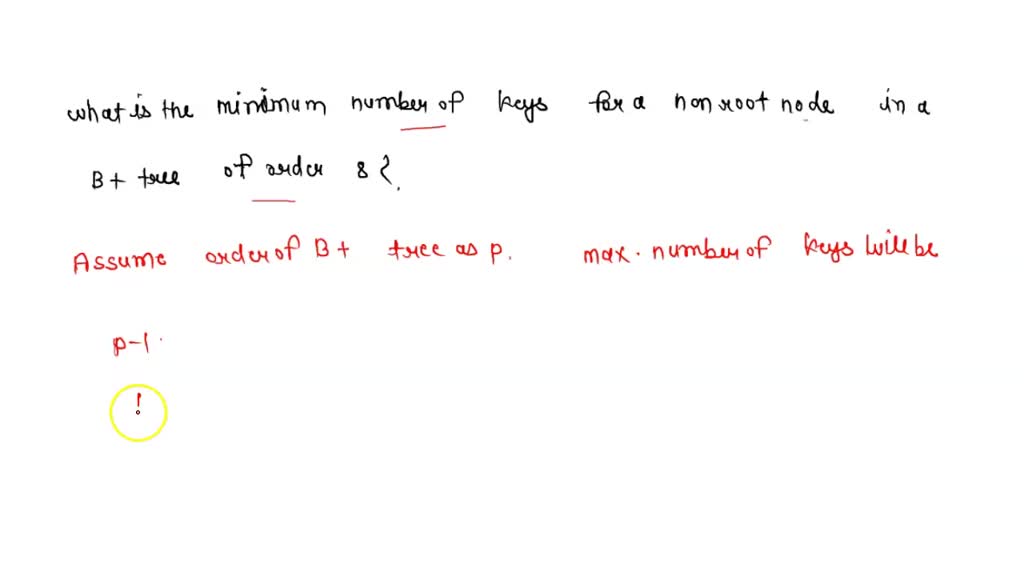 what is the minimum number of keys for a non root node in a
B+ tree of order 8 ?.
Assume order of B+ tree as p. max. number of keys will be
p-1.
!